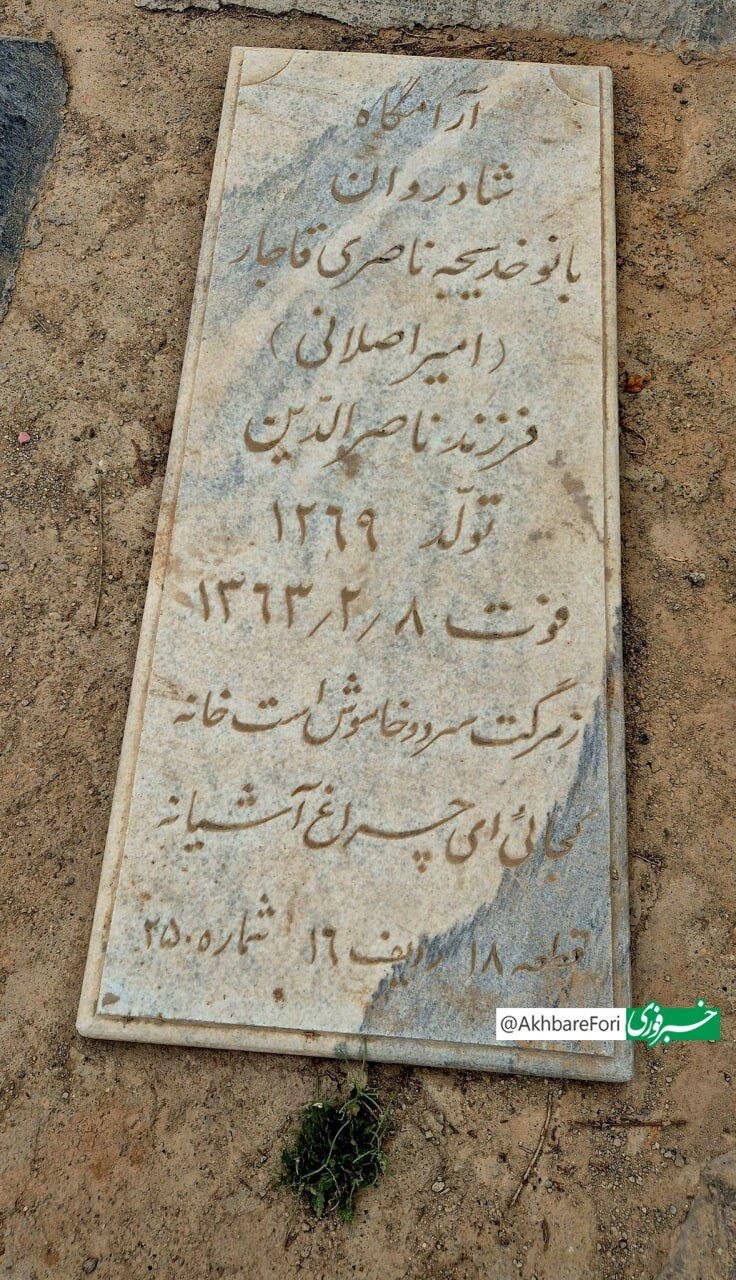 آرامگاه
شادروان
بانو خدیجه ناصری قاجار
(امیر اصلانی)
فرزند ناصرالدّین
تولّد ۱۲۶۹
فوت ۱۳۶۳٫۲٫۸
ز مرگت سرد و خاموش است خانه
کجائی ای چراغ آشیانه
قطعه ۱۸ ردیف ۱۶ شماره ۲۵۰
@AkhbareFori خبرفوری